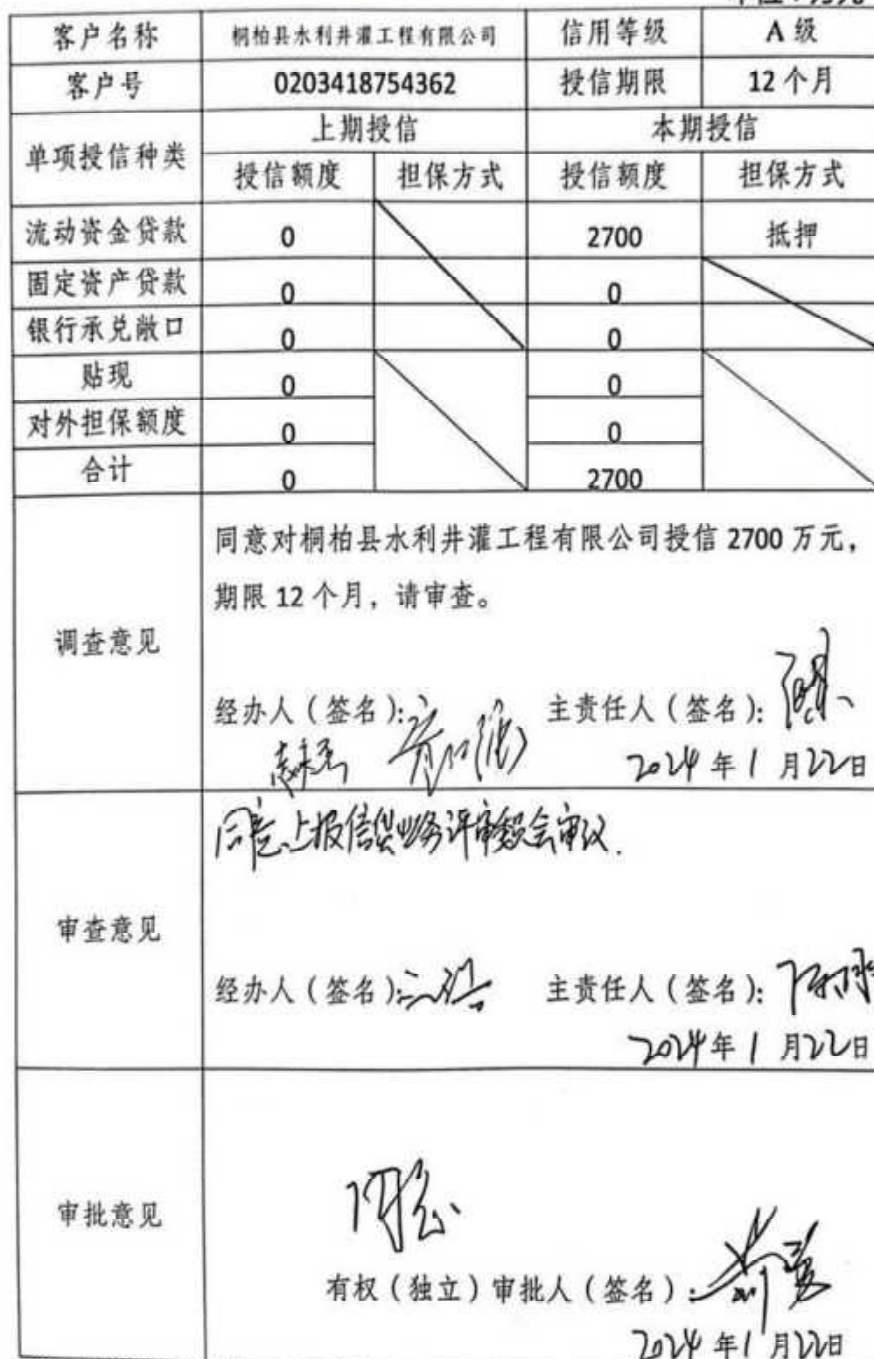 单位：万元
客户名称 桐柏县水利井灌工程有限公司 信用等级 A 级
客户号 0203418754362 授信期限 12 个月
单项授信种类 上期授信 本期授信
授信额度 担保方式 授信额度 担保方式
流动资金贷款 0 2700 抵押
固定资产贷款 0 0
银行承兑敞口 0 0
贴现 0 0
对外担保额度 0 0
合计 0 2700
调查意见
同意对桐柏县水利井灌工程有限公司授信 2700 万元，
期限 12 个月，请审查。
经办人（签名）： 主责任人（签名）：
2024 年 1 月 22 日
审查意见
同意上报信贷业务评审委员会审议.
经办人（签名）： 主责任人（签名）：
2024 年 1 月 22 日
审批意见
同意
有权（独立）审批人（签名）：
2024 年 1 月 22 日